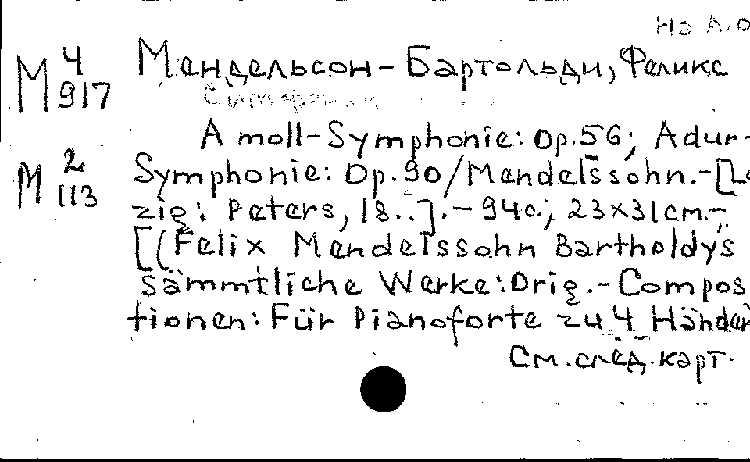 М 4/917 Мендельсон-Бартольди, Феликс
A moll-Symphonie: Op.56; Adur-
М 2/113 Symphonie: Op.90/Mendelssohn.-[Le
zig: Peters, 18..].-94c.; 23x31cm.-
[(Felix Mendelssohn Bartholdy's
sämmtliche Werke: Orig.-Compos
tionen: Für Pianoforte zu 4 Händen
См. след. карт.